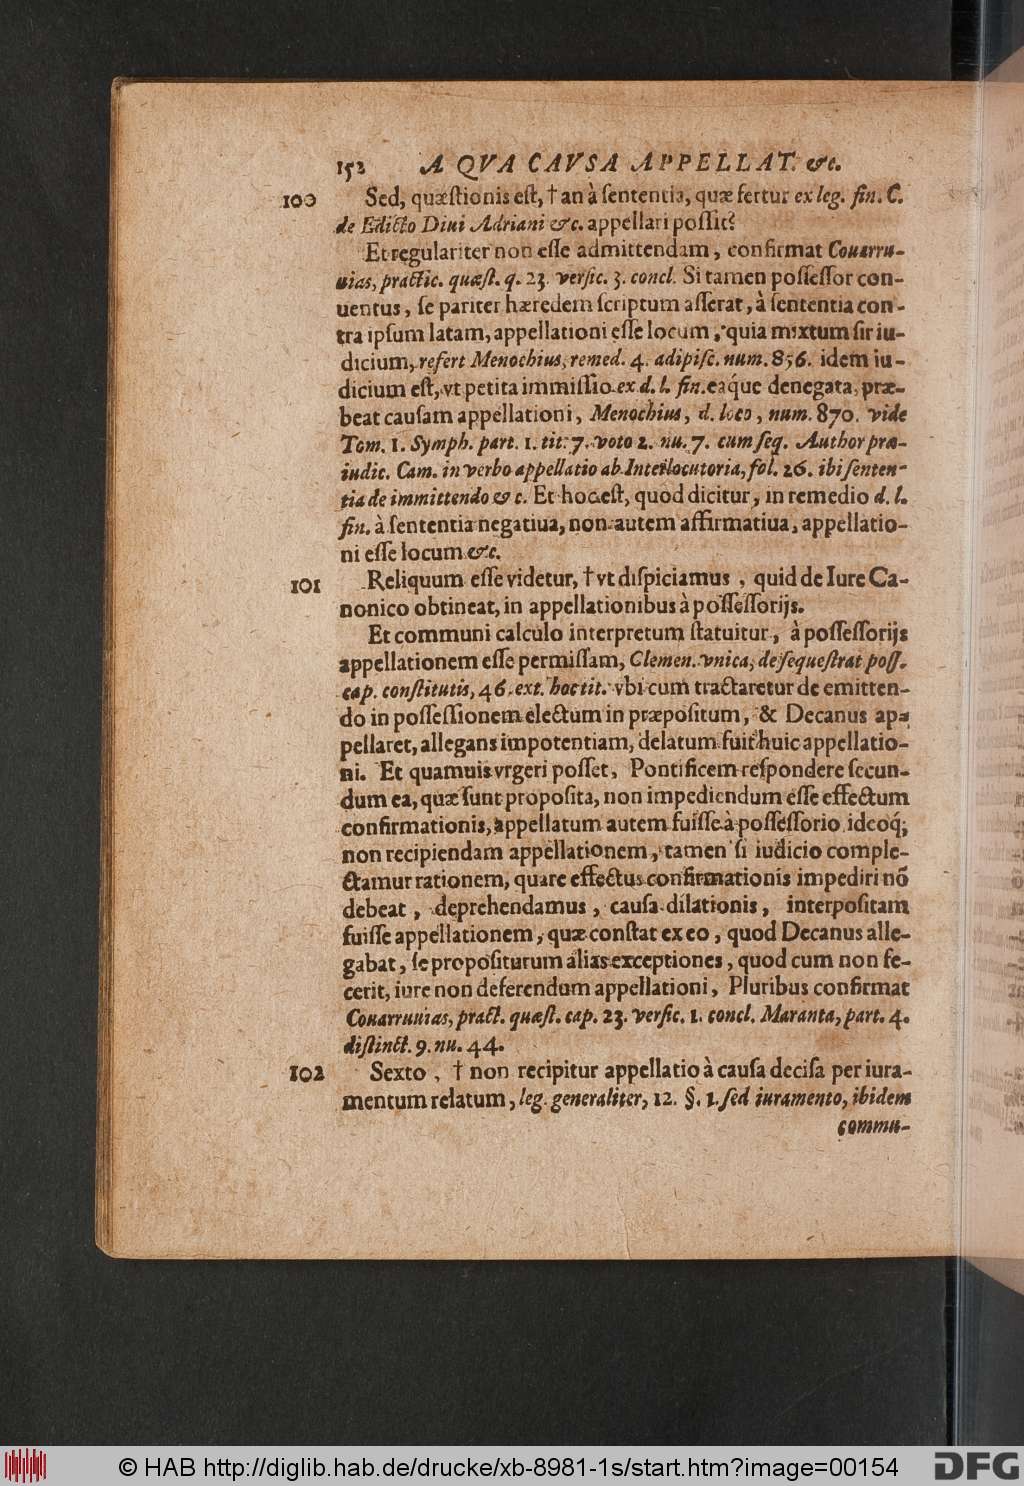 152 A QVA CAVSA APPELLAT. &c.
100 Sed, quæſtionis eſt, † an à ſententia, quæ fertur ex leg. fin. C.
de Edicto Diui Adriani &c. appellari poſſit?
Et regulariter non eſſe admittendam, confirmat Couarru-
uias, practic. quæſt. q. 23. verſic. 3. concl. Si tamen poſſeſſor con-
uentus, ſe pariter hæredem ſcriptum aſſerat, à ſententia con-
tra ipſum latam, appellationi eſſe locum, quia mixtum ſit iu-
dicium, refert Menochius, remed. 4. adipiſc. num. 856. idem iu-
dicium eſt, vt petita immiſſio ex d. l. fin. eaq́ue denegata, præ-
beat cauſam appellationi, Menochius, d. loco, num. 870. vide
Tom. 1. Symph. part. 1. tit. 7. voto 2. nu. 7. cum ſeq. Author præ-
iudic. Cam. in verbo appellatio ab Interlocutoria, fol. 26. ibi ſenten-
tia de immittendo & c. Et hoc eſt, quod dicitur, in remedio d. l.
fin. à ſententia negatiua, non autem affirmatiua, appellatio-
ni eſſe locum &c.
101 Reliquum eſſe videtur, † vt diſpiciamus, quid de Iure Ca-
nonico obtineat, in appellationibus à poſſeſſorijs.
Et communi calculo interpretum ſtatuitur, à poſſeſſorijs
appellationem eſſe permiſſam, Clemen. vnica, de ſequeſtrat poſſ.
cap. conſtitutis, 46. ext. hoc tit. vbi cum tractaretur de emitten-
do in poſſeſſionem electum in præpoſitum, & Decanus ap-
pellaret, allegans impotentiam, delatum fuit huic appellatio-
ni. Et quamuis vrgeri poſſet, Pontificem reſpondere ſecun-
dum ea, quæ ſunt propoſita, non impediendum eſſe effectum
confirmationis, appellatum autem fuiſſe à poſſeſſorio ideoq;
non recipiendam appellationem, tamen ſi iudicio comple-
ctamur rationem, quare effectus confirmationis impediri nō
debeat, deprehendamus, cauſa dilationis, interpoſitam
fuiſſe appellationem, quæ conſtat ex eo, quod Decanus alle-
gabat, ſe propoſiturum alias exceptiones, quod cum non fe-
cerit, iure non deferendum appellationi, Pluribus confirmat
Couarruuias, pract. quæſt. cap. 23. verſic. 1. concl. Maranta, part. 4.
diſtinct. 9. nu. 44.
102 Sexto, † non recipitur appellatio à cauſa deciſa per iura-
mentum relatum, leg. generaliter, 12. §. 1. ſed iuramento, ibidem
commu-
© HAB http://diglib.hab.de/drucke/xb-8981-1s/start.htm?image=00154
DFG